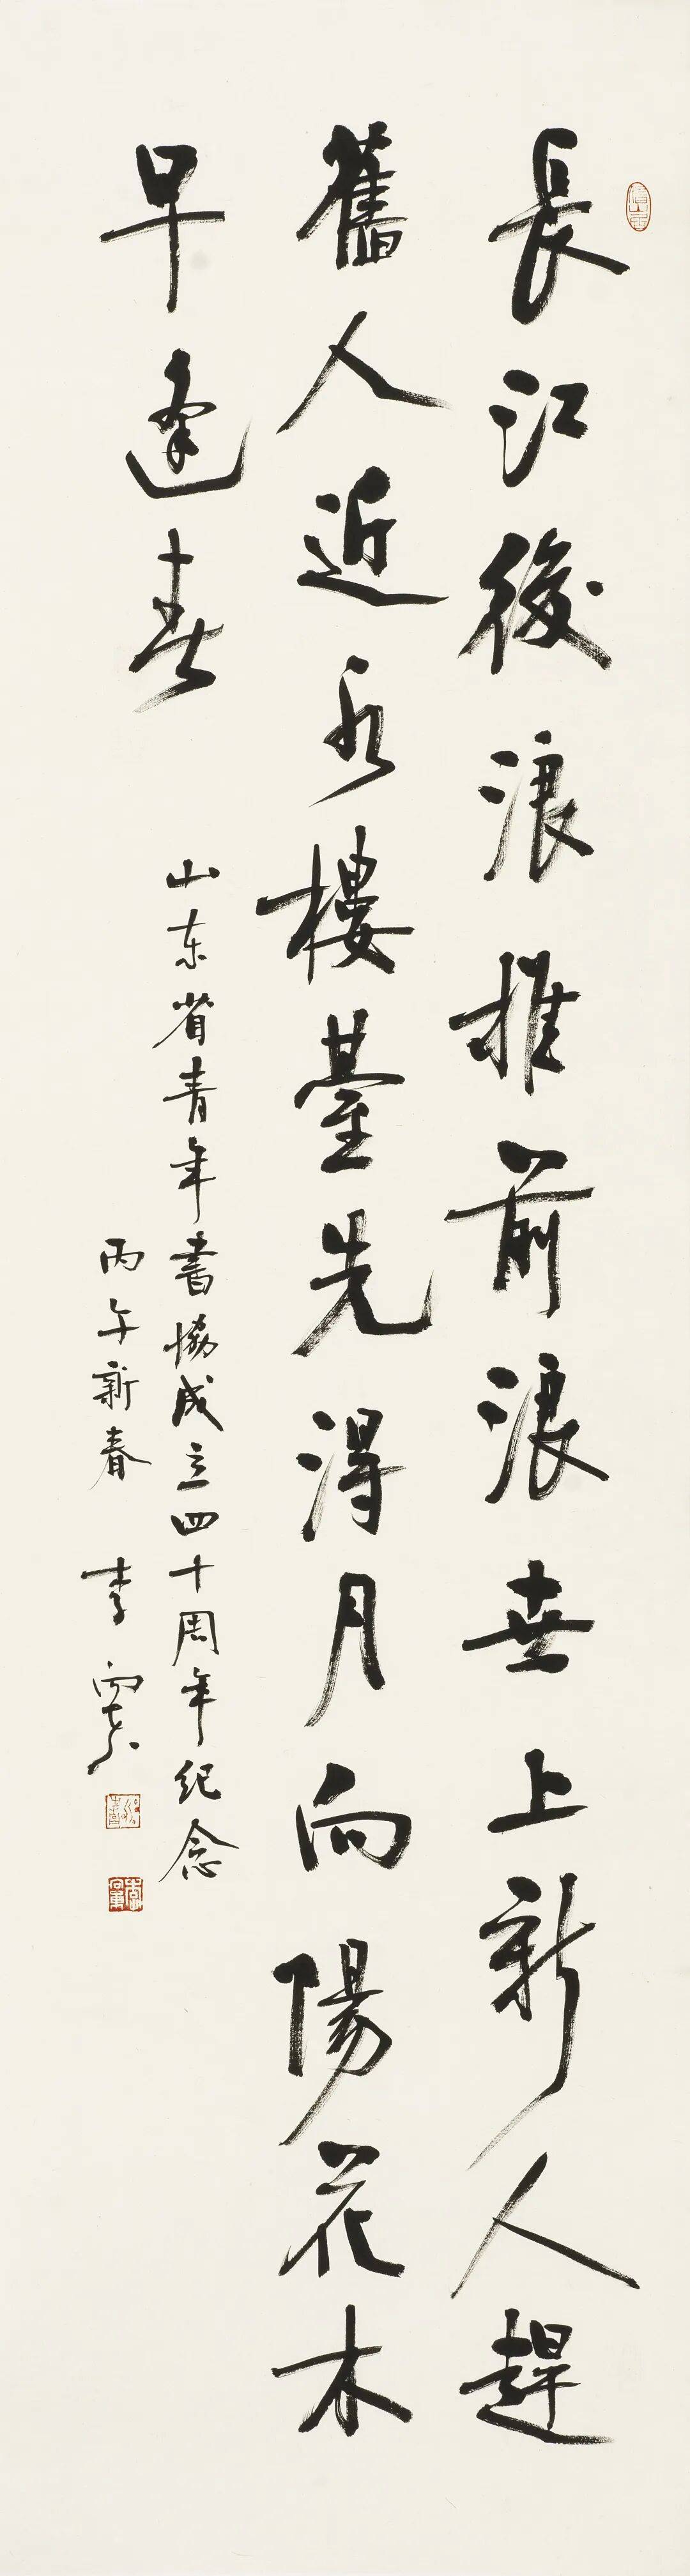 長江後浪推前浪世上新人趕
舊人近水樓臺先得月向陽花木
早逢春
山东省青年書協成立四十周年纪念
丙午新春 李向東